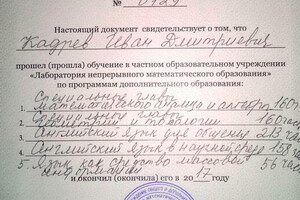 № 0429
Настоящий документ свидетельствует о том, что
Кадрев Иван Дмитриевич
прошел (прошла) обучение в частном образовательном учреждении
«Лаборатория непрерывного математического образования»
по программам дополнительного образования:
Специальные главы
1. математического анализа и алгебр 160ч
2. геометрии и топологии 160 часов
3. Английский язык для общения 213 час
4. Английский язык в научной сфер 158 ч
5. Язык как средство массовой 56 часов
информации
и окончил (окончила) его в 2017 году